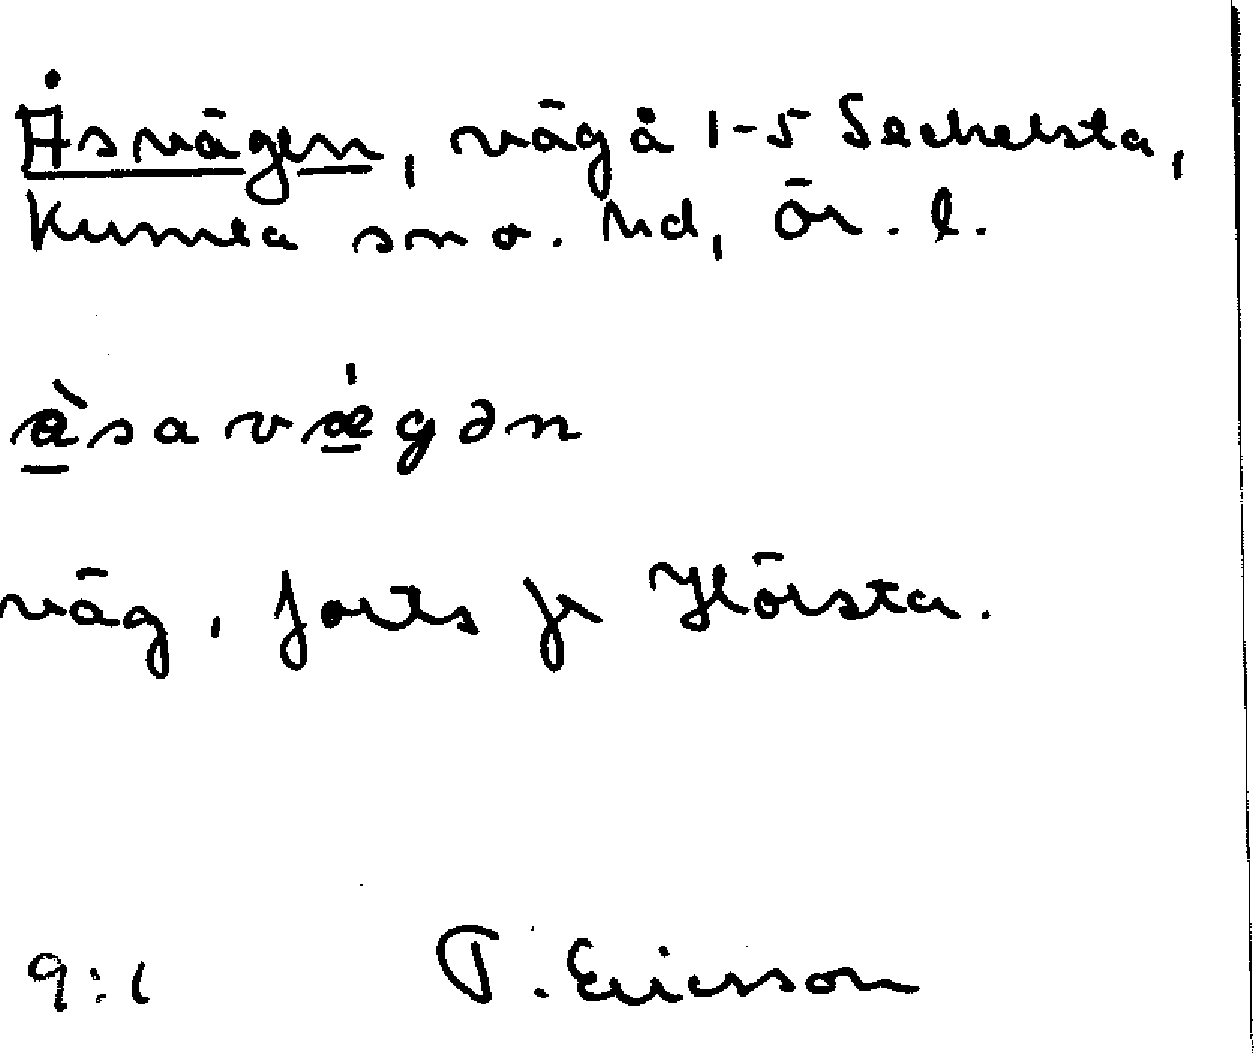 Åsvägen, väg å 1-5 Seckelsta,
Kumla sn o. hd, Ör. l.
åsavǽgən
väg, forts fr Hörsta.
9:1 T. Ericsson